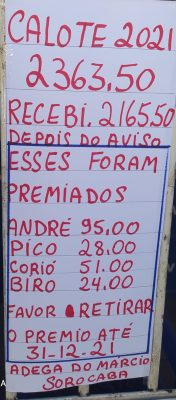 CALOTE 2021
2363,50
RECEBI. 2165,50
DEPOIS DO AVISO
ESSES FORAM
PREMIADOS
ANDRÉ 95,00
PICO 28,00
CORIÓ 51.00
BIRO 24.00
FAVOR RETIRAR
O PREMIO ATÉ
31-12-21
ADEGA DO MÁRCIO
SOROCABA